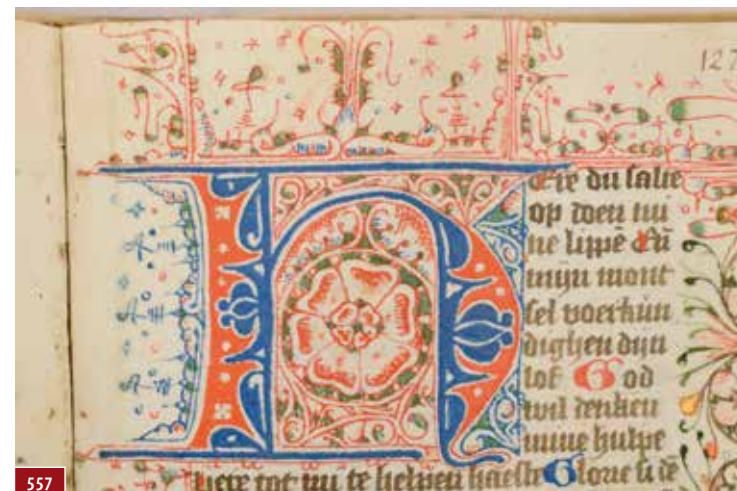 127
H
ere du salte
op doen mi
ne lippē Eñ
mijn mont
sel voerkun
dighen dijn
lof God
wil denken
mine hulpe
here tot mi te helpen haeste Glorie si dē
557